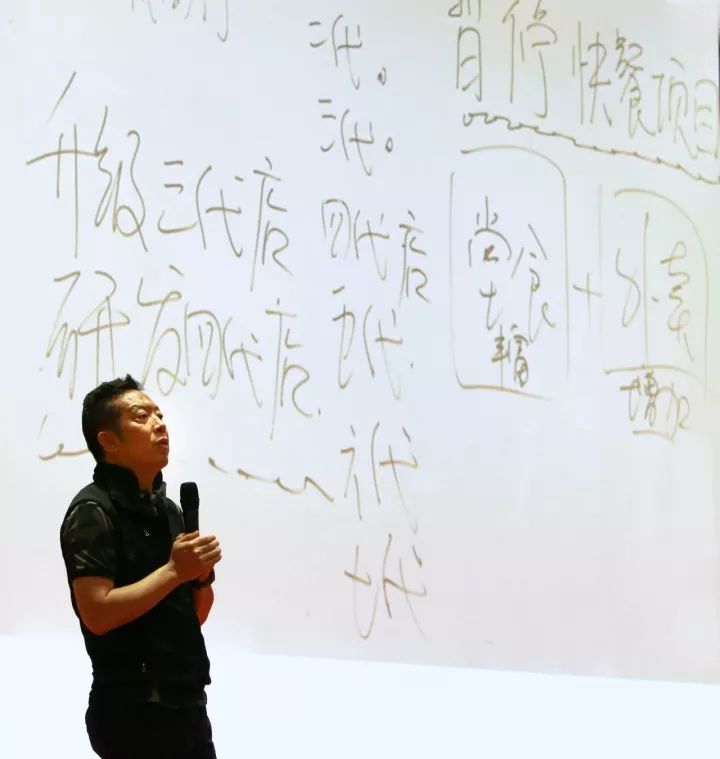 升级三代店
研发四代店.
二代。
三代。
四代店
五代.
六代
七代
暂停快餐项目
堂食 + 外卖
丰富
增加